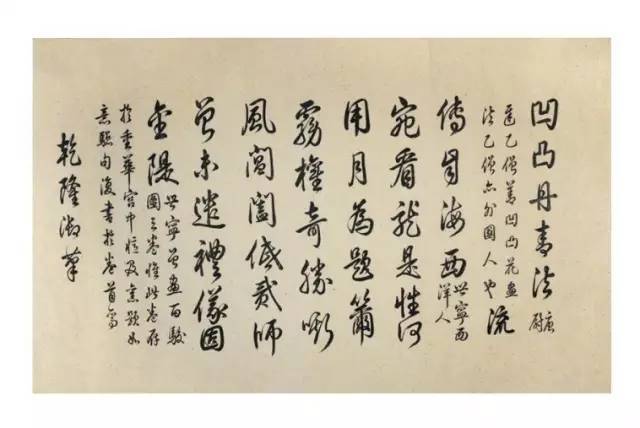 凹凸丹青法唐尉
遲乙僧善凹凸花畫
法乙僧亦外國人也流
傳自海西世寧西
洋人
宛看龍是性何
用月為題籋
霧權奇勝嘶
風閶闔低貳師
曾未遣禮儀
金隄世寧曾畫百駿
圖三卷惟此卷存
於重華宮中憶及舊題如
意驄句復書於卷首
乾隆御筆